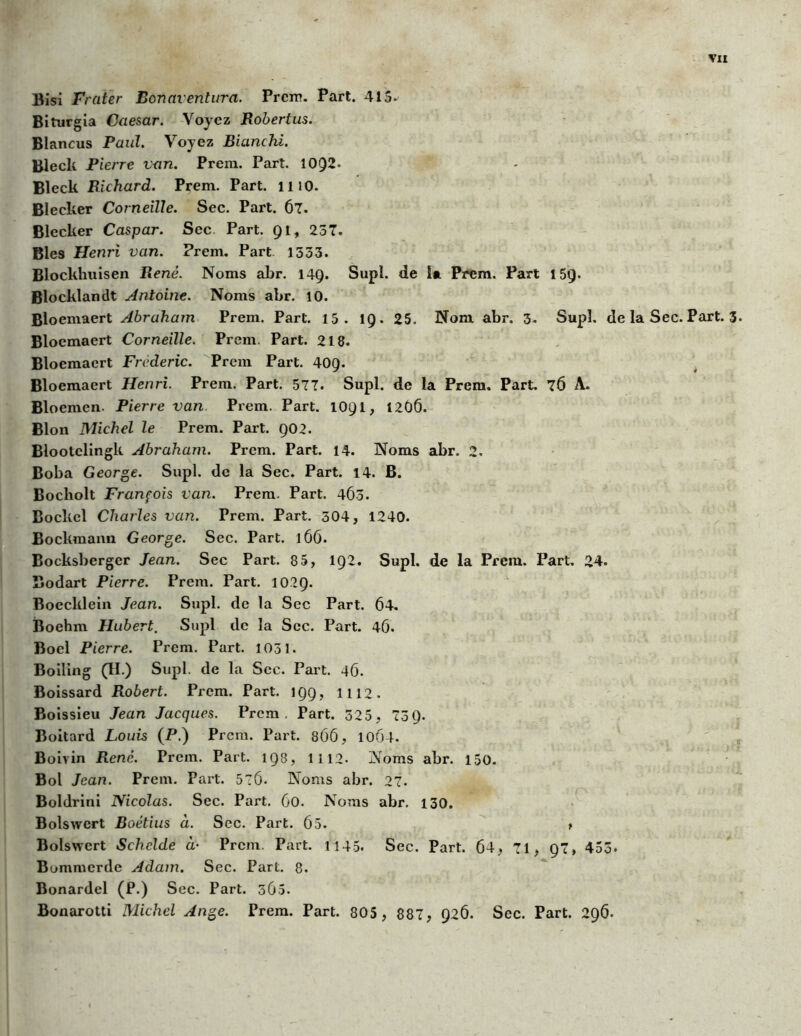 VII
Bisi Frater Bonaventura. Prem. Part. 415.
Biturgia Caesar. Voyez Robertus.
Blancus Paul. Voyez Bianchi.
Bleck Pierre van. Prem. Part. 1092.
Bleck Richard. Prem. Part. 1110.
Blecker Corneille. Sec. Part. 67.
Blecker Caspar. Sec. Part. 91, 237.
Bles Henri van. Prem. Part. 1333.
Blockhuisen René. Noms abr. 149. Supl. de la Prem. Part 159.
Blocklandt Antoine. Noms abr. 10.
Bloemaert Abraham Prem. Part. 15. 19. 25. Nom abr. 3. Supl. de la Sec. Part. 3.
Bloemaert Corneille. Prem. Part. 218.
Bloemaert Frederic. Prem Part. 409.
Bloemaert Henri. Prem. Part. 577. Supl. de la Prem. Part. 76 A.
Bloemen. Pierre van. Prem. Part. 1091, 1206.
Blon Michel le Prem. Part. 902.
Blootelingk Abraham. Prem. Part. 14. Noms abr. 2.
Boba George. Supl. de la Sec. Part. 14. B.
Bocholt François van. Prem. Part. 463.
Bockel Charles van. Prem. Part. 304, 1240.
Bockmann George. Sec. Part. 166.
Bocksberger Jean. Sec Part. 85, 192. Supl. de la Prem. Part. 24.
Bodart Pierre. Prem. Part. 1029.
Boecklein Jean. Supl. de la Sec Part. 64.
Boehm Hubert. Supl de la Sec. Part. 46.
Boel Pierre. Prem. Part. 1031.
Boiling (H.) Supl. de la Sec. Part. 46.
Boissard Robert. Prem. Part. 199, 1112.
Boissieu Jean Jacques. Prem. Part. 325, 739.
Boitard Louis (P.) Prem. Part. 866, 1064.
Boivin René. Prem. Part. 198, 1112. Noms abr. 150.
Bol Jean. Prem. Part. 576. Noms abr. 27.
Boldrini Nicolas. Sec. Part. 60. Noms abr. 130.
Bolswert Boëtius à. Sec. Part. 65.
Bolswert Schelde à. Prem. Part. 1145. Sec. Part. 64, 71, 97, 453.
Bommerde Adam. Sec. Part. 8.
Bonardel (P.) Sec. Part. 365.
Bonarotti Michel Ange. Prem. Part. 805, 887, 926. Sec. Part. 296.